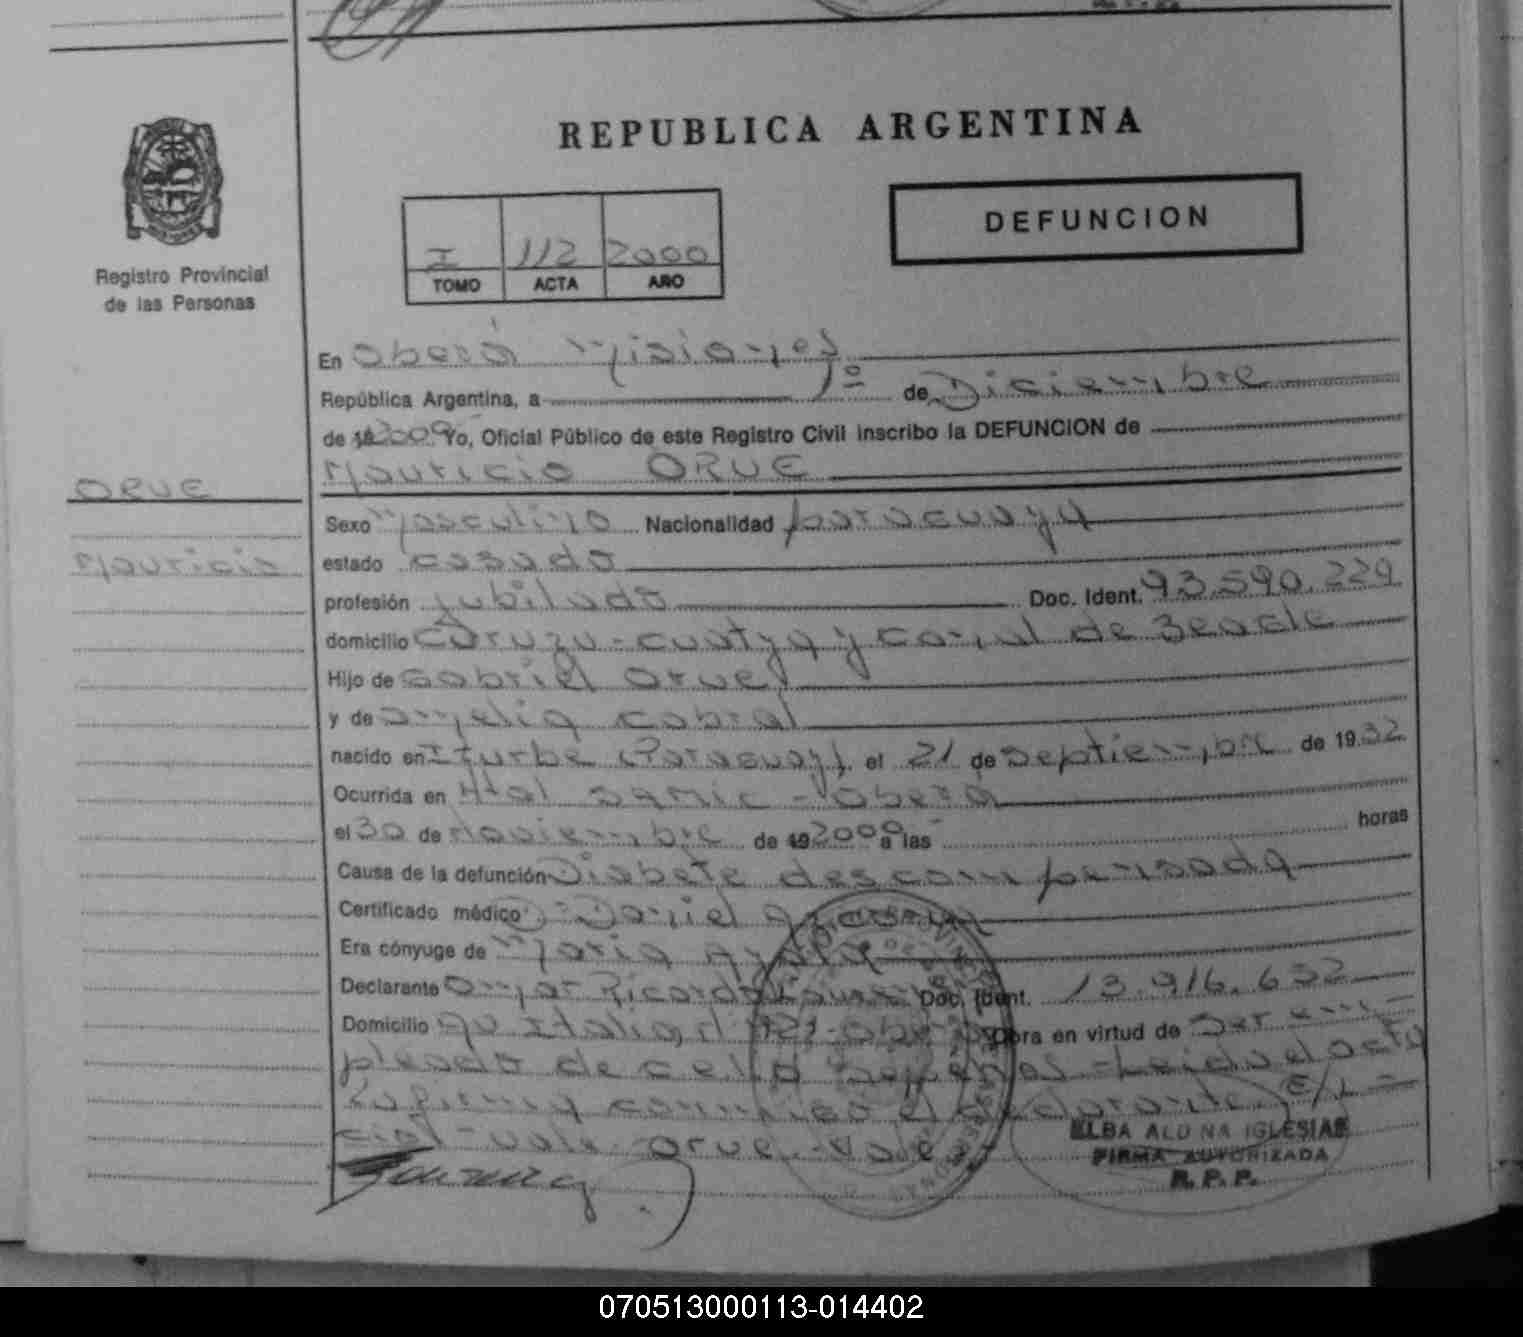 REPUBLICA ARGENTINA
DEFUNCION
I 112 2000
TOMO ACTA AÑO
Registro Provincial
de las Personas
En Oberá Misiones
República Argentina, a 1º de Diciembre
de 19 2000 Yo, Oficial Público de este Registro Civil inscribo la DEFUNCION de
Mauricio ORUE
ORUE
Mauricio
Sexo Masculino Nacionalidad paraguaya
estado casado
profesión jubilado Doc. Ident. 93.590.229
domicilio Curuzu-cuatya y canal de Beagle
Hijo de Gabriel Orue
y de Amelia Cabral
nacido en Iturbe (Paraguay) el 21 de Septiembre de 1932
Ocurrida en Htal Samic - Oberá
el 30 de Noviembre de 19 2000 a las horas
Causa de la defunción Diabete descompensada
Certificado médico Dr Daniel
Era cónyuge de Maria Ayala
Declarante Omar Ricardo Doc. Ident. 13.916.632
Domicilio Av Italia Obra en virtud de Ser em-
pleado de - Leida el acta
conmigo el declarante. E/L -
cial - vale - orue - vale
ELBA IGLESIAS
FIRMA AUTORIZADA
R. P. P.
070513000113-014402